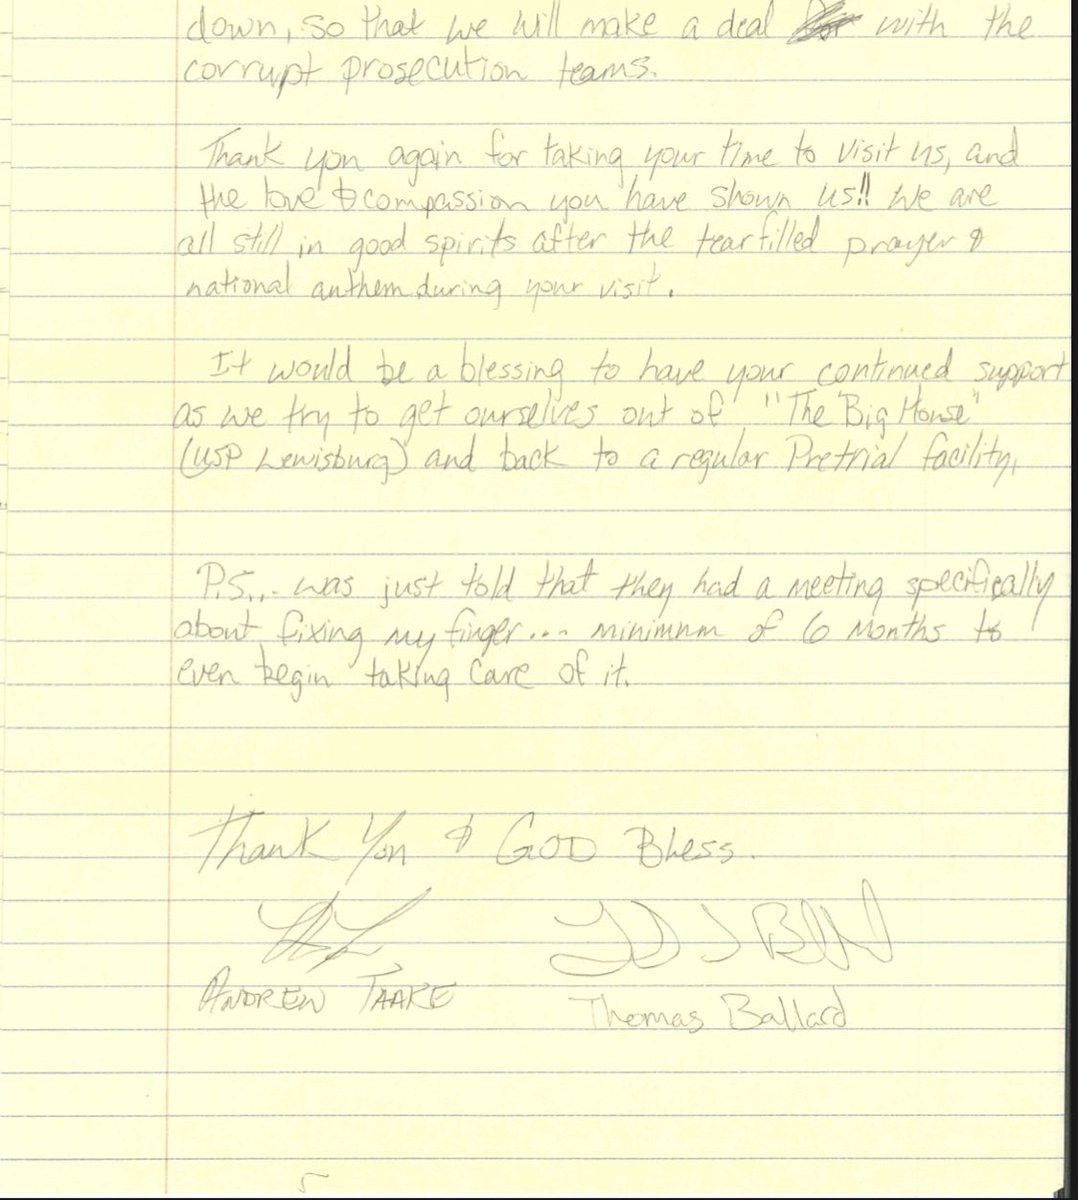 down, so that we will make a deal with the
corrupt prosecution teams.
Thank you again for taking your time to visit us, and
the love & compassion you have shown us!! We are
all still in good spirits after the tearfilled prayer &
national anthem during your visit.
It would be a blessing to have your continued support
as we try to get ourselves out of "The Big House"
(USP Lewisburg) and back to a regular Pretrial facility,
P.S... was just told that they had a meeting specifically
about fixing my finger... minimum of 6 Months to
even begin taking care of it.
Thank You & GOD Bless.
ANDREW TAAKE
Thomas Ballard
5